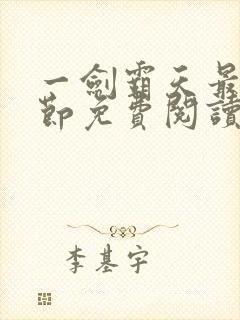 一劍霸天最
節免費閱讀
李基宇